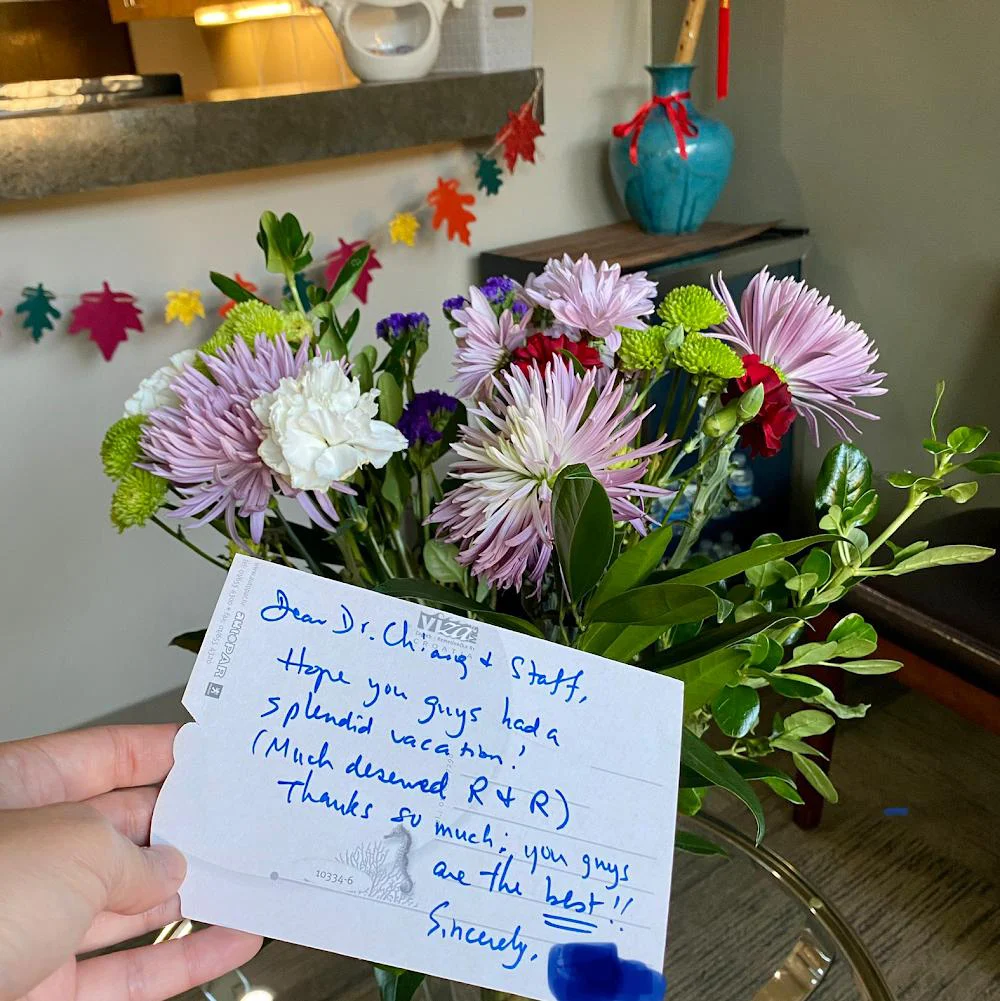 Dear Dr. Chiang & Staff,
Hope you guys had a
splendid vacation!
(Much deserved R & R)
Thanks so much; you guys
are the best!!
Sincerely,
viza
CROATIA
10334-6